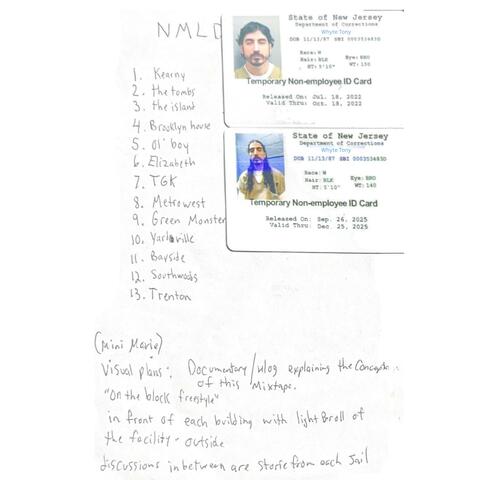 NMLD
State of New Jersey
Department of Corrections
Whyte Tony
DOB 11/13/87 SBI 000353483D
Race: W
Hair: BLK Eye: BRO
HT: 5'10" WT: 150
Temporary Non-employee ID Card
Released On: Jul. 18, 2022
Valid Thru: Oct. 18, 2022
State of New Jersey
Department of Corrections
Whyte Tony
DOB 11/13/87 SBI 000353483D
Race: W
Hair: BLK Eye: BRO
HT: 5'10" WT: 140
Temporary Non-employee ID Card
Released On: Sep. 26, 2025
Valid Thru: Dec. 25, 2025
1. Kearny
2. the tombs
3. the island
4. Brooklyn house
5. ol' boy
6. Elizabeth
7. TGK
8. Metrowest
9. Green Monster
10. Yardville
11. Bayside
12. Southwoods
13. Trenton
(Mini Movie)
Visual plans: Documentary/vlog explaining the Concepts
of this Mixtape.
"On the block freestyle"
in front of each building with light Broll of
the facility - outside
discussions in between are storie from each Jail